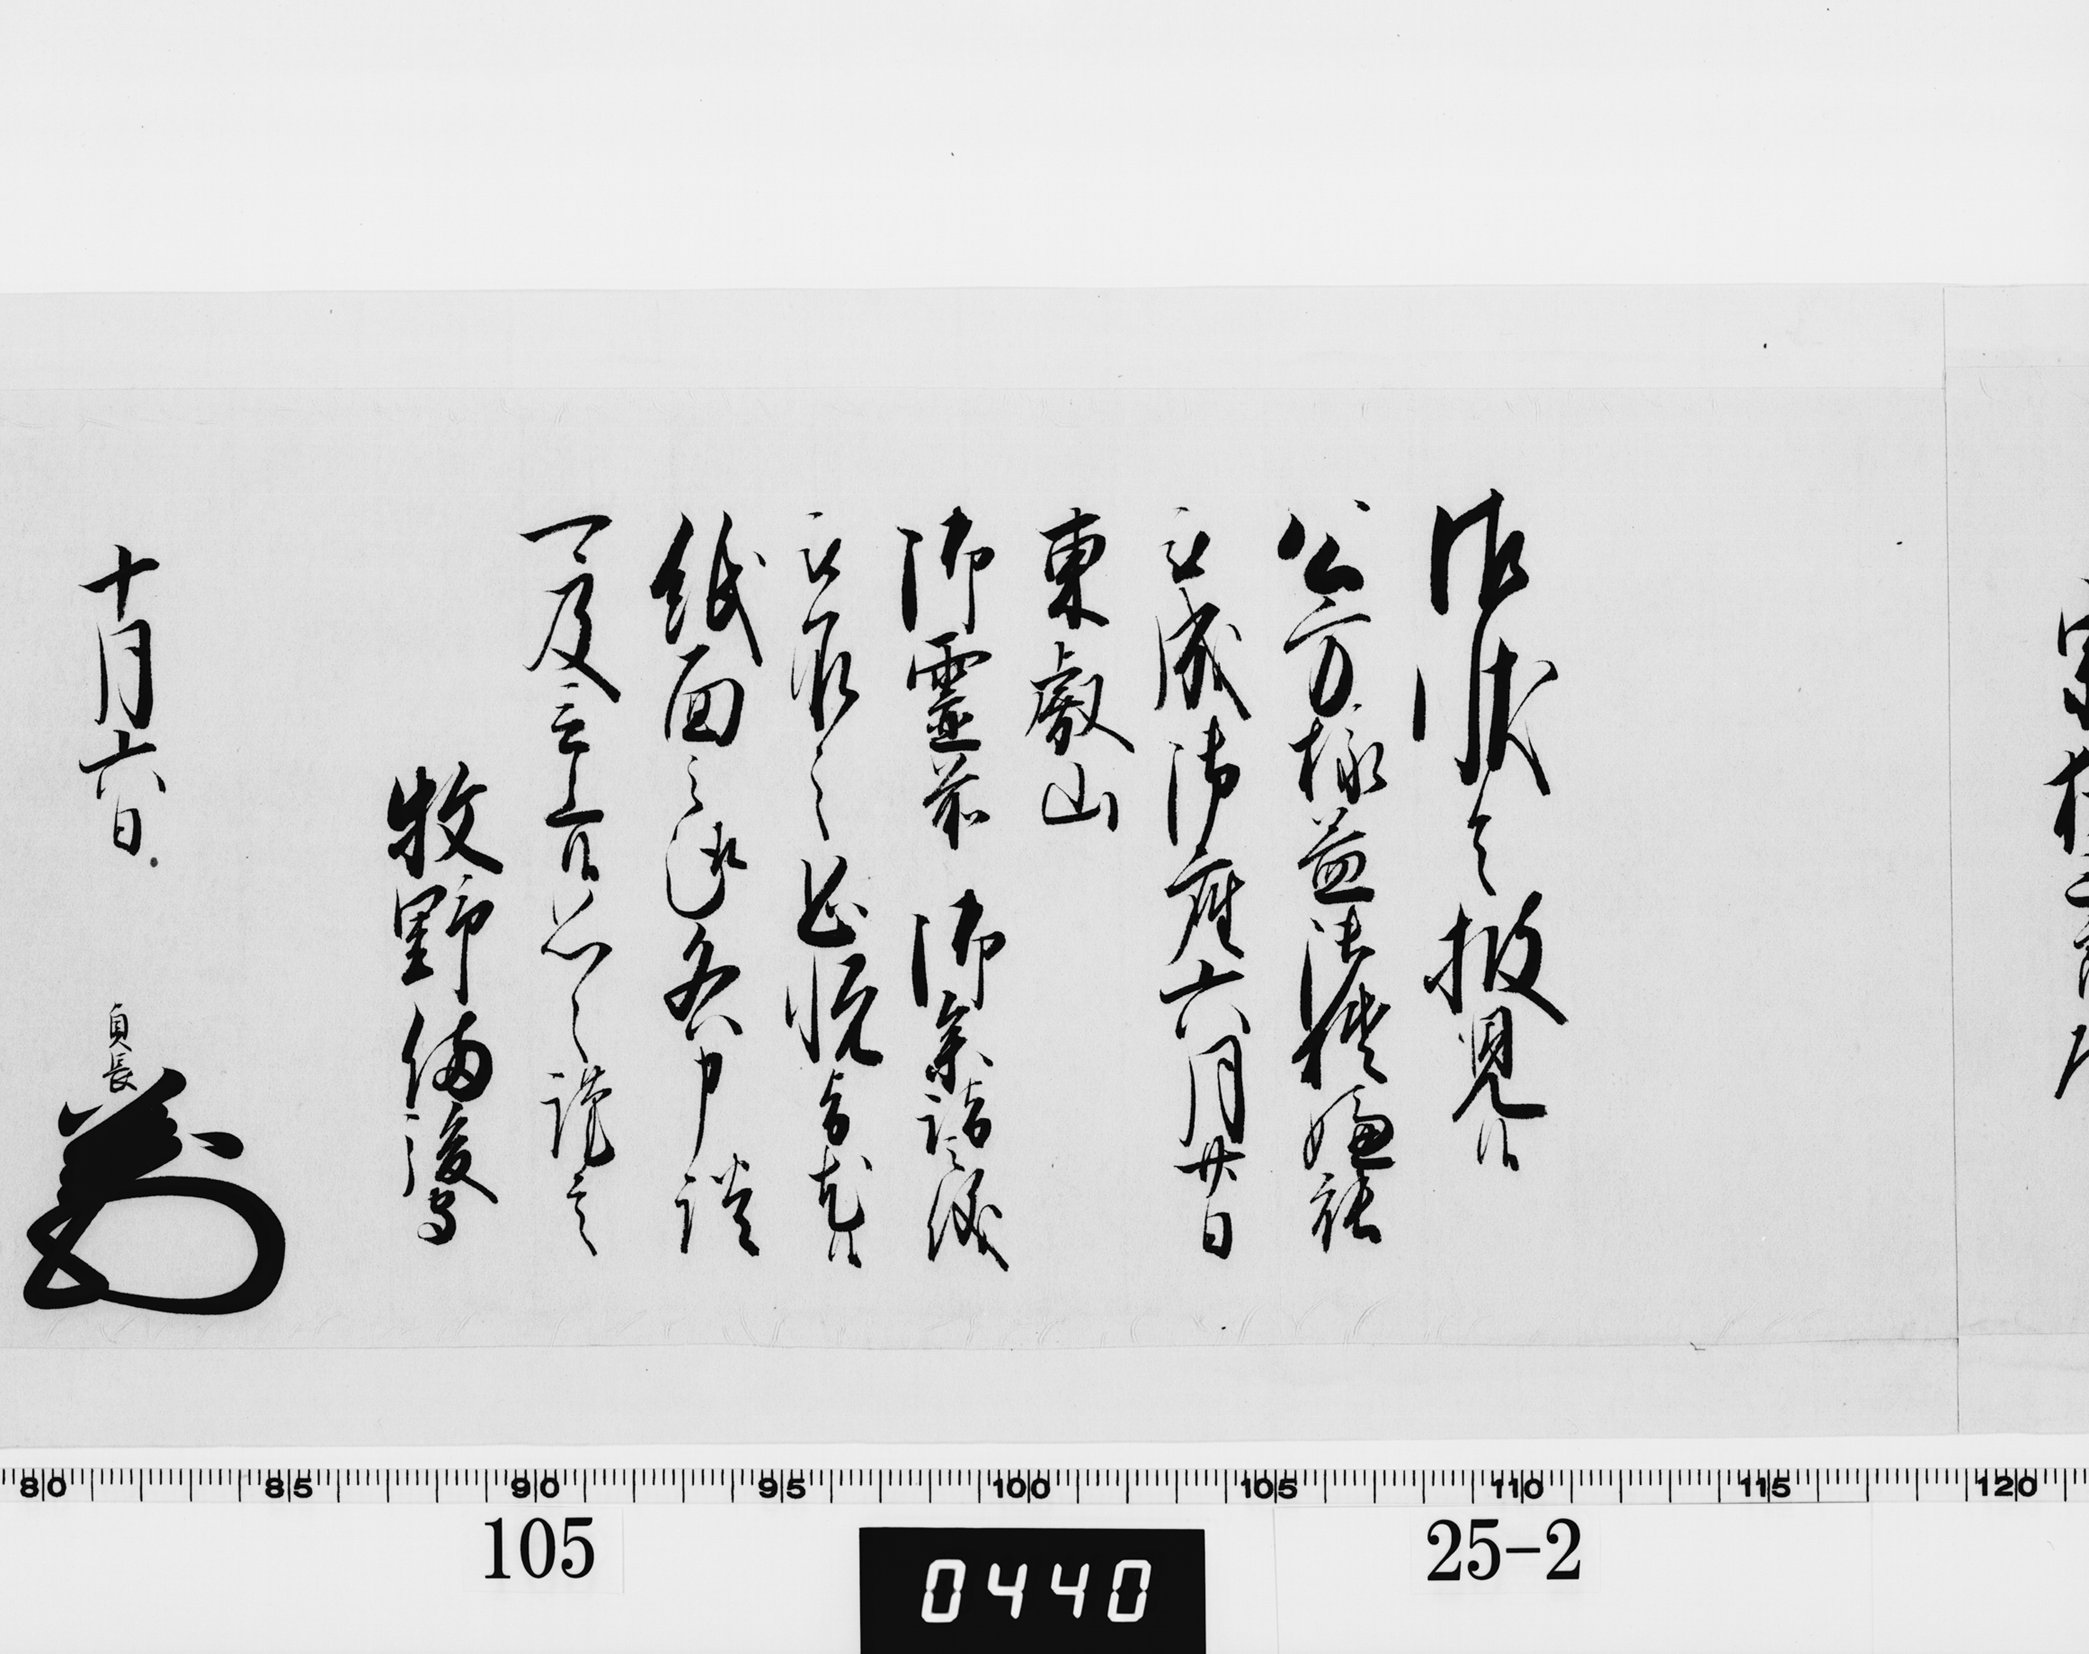 御状令披見候
公方様益御機嫌能
被成御座六月廿日
東叡山
御霊前 御参詣儀
被承之恐悦旨尤候
紙面之趣各申談
可及言上候恐々謹言
牧野備後守
十月六日
貞長
80 85 90 95 100 105 110 115 120
105
0440
25-2